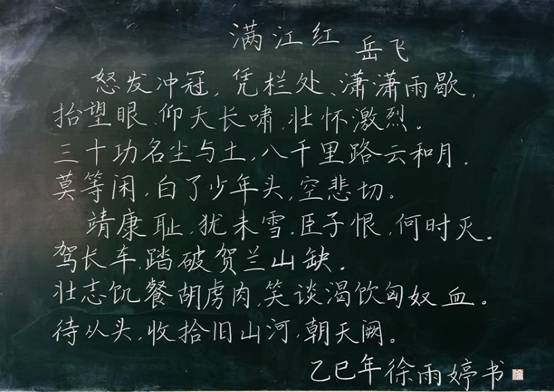 满江红 岳飞
怒发冲冠，凭栏处、潇潇雨歇，
抬望眼，仰天长啸，壮怀激烈。
三十功名尘与土，八千里路云和月。
莫等闲，白了少年头，空悲切。
靖康耻，犹未雪，臣子恨，何时灭。
驾长车，踏破贺兰山缺。
壮志饥餐胡虏肉，笑谈渴饮匈奴血。
待从头，收拾旧山河，朝天阙。
乙巳年徐雨婷书